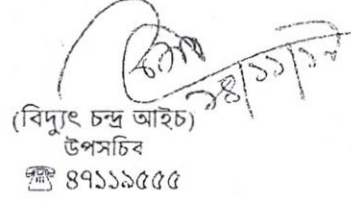 ১৪/১১/১৮
(বিদ্যুৎ চন্দ্র আইচ)
উপসচিব
☎ ৪৭১১৯৫৫৫